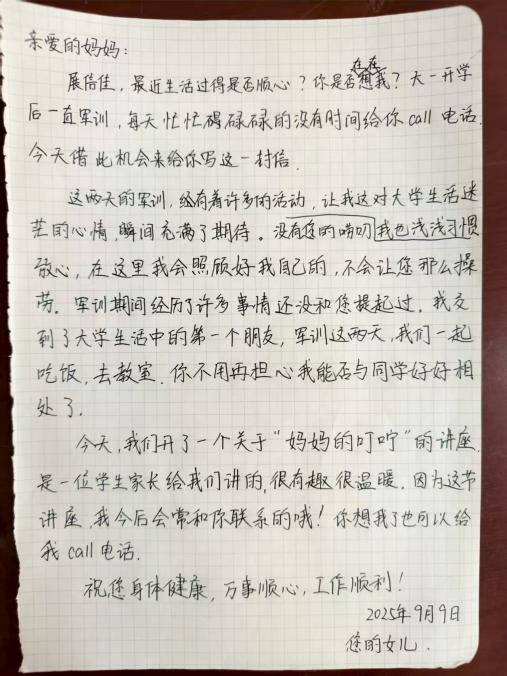 亲爱的妈妈：
展信佳，最近生活过得是否顺心？你是否在想我？大一开学
后一直军训，每天忙忙碍碌碌的没有时间给你call电话.
今天借此机会来给你写这一封信.
这两天的军训，经有着许多的活动，让我这对大学生活迷
茫的心情，瞬间充满了期待。没有您的唠叨我也浅浅习惯
放心，在这里我会照顾好我自己的，不会让您那么操
劳。军训期间经历了许多事情还没和您提起过。我交
到了大学生活中的第一个朋友，军训这两天，我们一起
吃饭，去教室.你不用再担心我能否与同学好好相
处了.
今天，我们开了一个关于“妈妈的叮咛”的讲座.
是一位学生家长给我们讲的，很有趣很温暖.因为这节
讲座，我今后会常和你联系的哦！你想我了也可以给
我call电话.
祝您身体健康，万事顺心，工作顺利！
2025年9月9日
您的女儿.